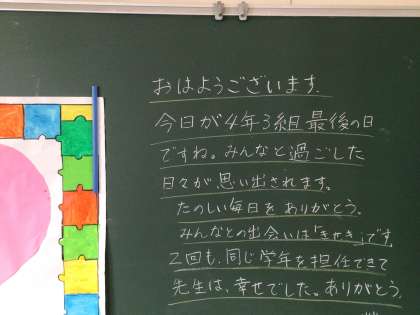 おはようございます。
今日が4年3組最後の日
ですね。みんなと過ごした
日々が思い出されます。
たのしい毎日をありがとう。
みんなとの出会いは「きせき」です。
2回も、同じ学年を担任できて
先生は、幸せでした。ありがとう。